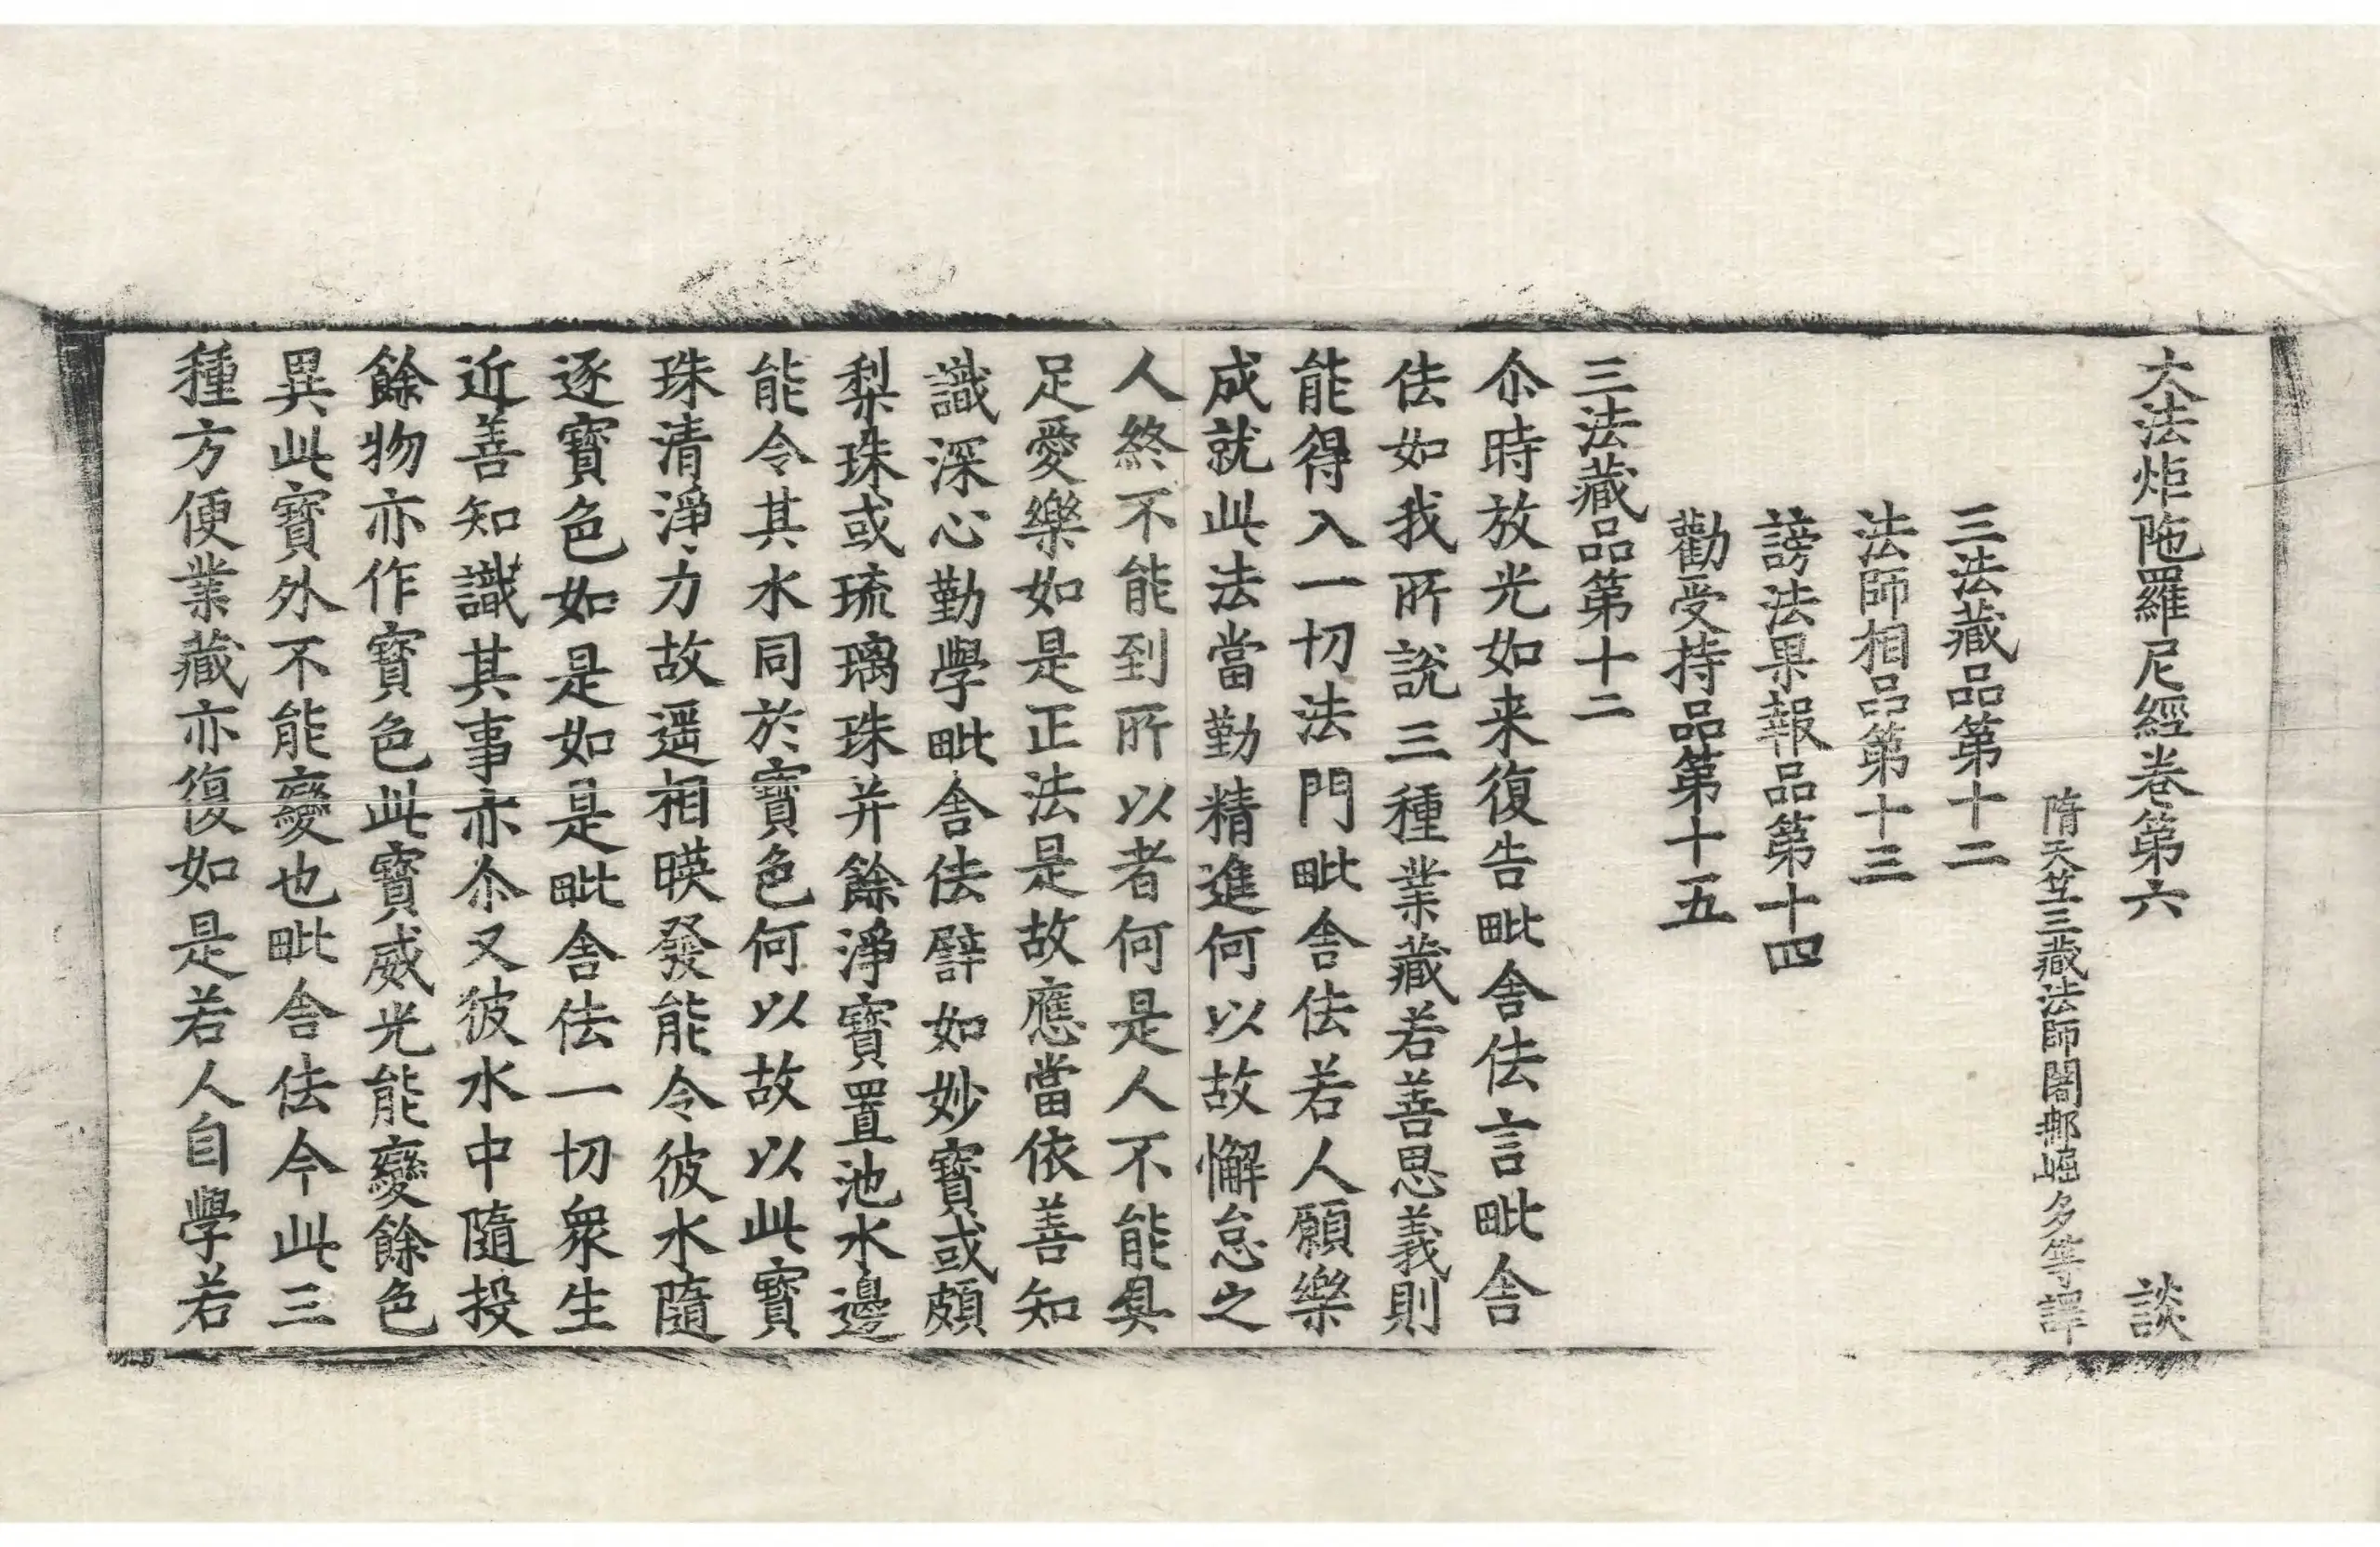 大法炬陁羅尼經卷第六　談
隋天竺三藏法師闍那崛多等譯
三法藏品第十二
法師相品第十三
謗法果報品第十四
勸受持品第十五
三法藏品第十二
尒時放光如来復告毗舍佉言毗舍
佉如我所說三種業藏若善思義則
能得入一切法門毗舍佉若人願樂
成就此法當勤精進何以故懈怠之
人終不能到所以者何是人不能具
足愛樂如是正法是故應當依善知
識深心勤學毗舍佉譬如妙寶或頗
梨珠或琉璃珠并餘淨寶置池水邊
能令其水同於寶色何以故以此寶
珠清淨力故遥相暎發能令彼水隨
逐寶色如是如是毗舍佉一切衆生
近善知識其事亦尒又彼水中隨投
餘物亦作寶色此寶威光能變餘色
異此寶外不能變也毗舍佉今此三
種方便業藏亦復如是若人自學若